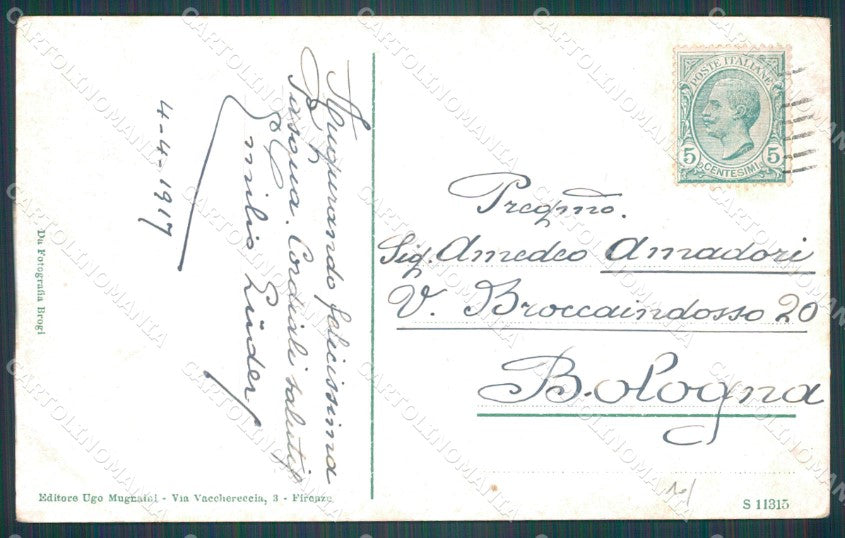 Augurando felicissima
Pasqua. Cordiali saluti
Emilio
4-4-1917
POSTE ITALIANE
5 CENTESIMI 5
Preg.mo.
Sig. Amedeo Amadori
V. Broccaindosso 20
Bologna
Da Fotografia Brogi
Editore Ugo Mugnaini - Via Vacchereccia, 3 - Firenze
S 11315
CARTOLINOMANIA